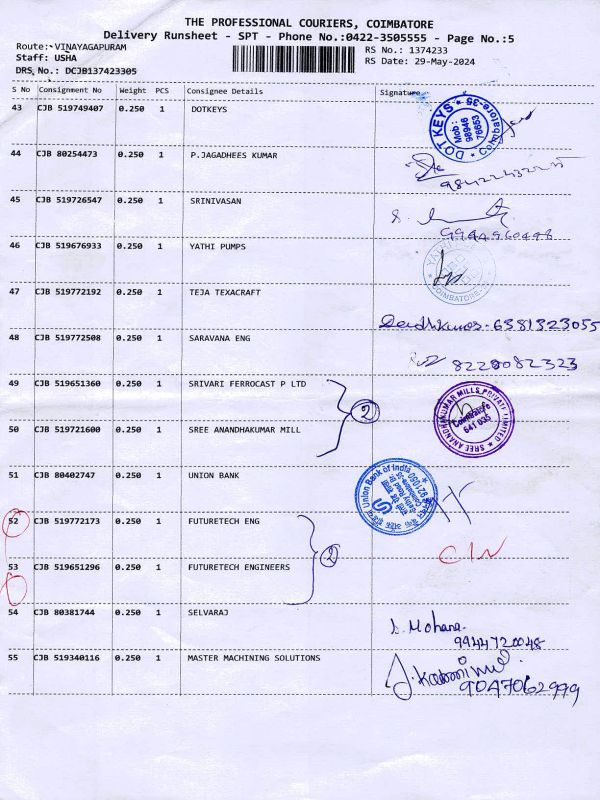 THE PROFESSIONAL COURIERS, COIMBATORE
Delivery Runsheet - SPT - Phone No.:0422-3505555 - Page No.:5
Route: VINAYAGAPURAM
Staff: USHA
DRS No.: DCJB137423305
RS No.: 1374233
RS Date: 29-May-2024
S No Consignment No Weight PCS Consignee Details Signature
43 CJB 519749407 0.250 1 DOTKEYS
DOT KEYS * Coimbatore-35 *
Mob:
98946
76653
44 CJB 80254473 0.250 1 P.JAGADHEES KUMAR
45 CJB 519726547 0.250 1 SRINIVASAN
9944960448
46 CJB 519676933 0.250 1 YATHI PUMPS
COIMBATORE
47 CJB 519772192 0.250 1 TEJA TEXACRAFT
6381323055
48 CJB 519772508 0.250 1 SARAVANA ENG
8220082323
49 CJB 519651360 0.250 1 SRIVARI FERROCAST P LTD
2
50 CJB 519721600 0.250 1 SREE ANANDHAKUMAR MILL
SREE ANANDHAKUMAR MILLS PRIVATE LIMITED
Coimbatore
641 035
51 CJB 80402747 0.250 1 UNION BANK
Union Bank of India
52 CJB 519772173 0.250 1 FUTURETECH ENG
2
53 CJB 519651296 0.250 1 FUTURETECH ENGINEERS
54 CJB 80381744 0.250 1 SELVARAJ
S. Mohana
9944720048
55 CJB 519340116 0.250 1 MASTER MACHINING SOLUTIONS
9047062999